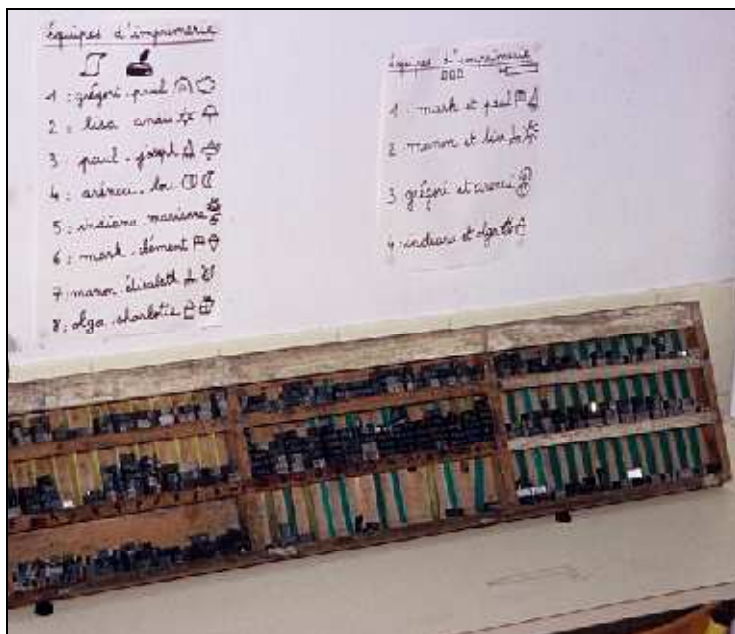 Équipes d'imprimerie
1 : grégori - paul
2 : lisa anaïs
3 paul - joseph
4 : - lou
5 : indiana marianne
6 : mark - clément
7 : manon élisabeth
8 : olga - charlotte
Équipes d'imprimerie
1 - mark et paul
2 manon et lisa
3 grégori et
4 - indiana et olga